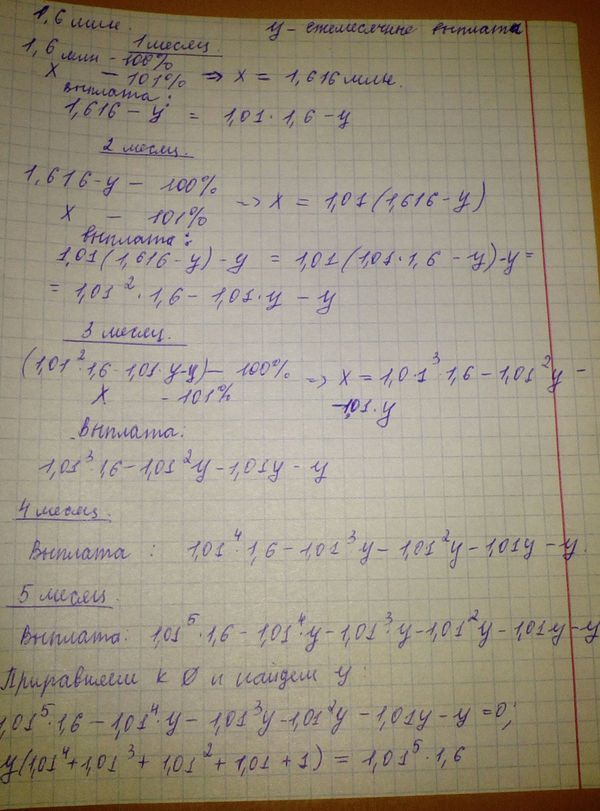 1,6 млн. y - ежемесячные выплата
1 месяц.
1,6 млн - 100%
x - 101% => x = 1,616 млн.
Выплата:
1,616 - y = 1,01 · 1,6 - y
2 месяц.
1,616 - y - 100%
x - 101% => x = 1,01(1,616 - y)
Выплата:
1,01(1,616 - y) - y = 1,01(1,01 · 1,6 - y) - y =
= 1,01² · 1,6 - 1,01 · y - y
3 месяц.
(1,01² · 1,6 - 1,01 · y - y) - 100%
x - 101% => x = 1,01³ · 1,6 - 1,01² y -
- 1,01 · y
Выплата:
1,01³ · 1,6 - 1,01² y - 1,01y - y
4 месяц.
Выплата: 1,01⁴ · 1,6 - 1,01³ y - 1,01² y - 1,01y - y.
5 месяц.
Выплата: 1,01⁵ · 1,6 - 1,01⁴ · y - 1,01³ · y - 1,01² y - 1,01y - y
Приравняем к 0 и найдем y:
1,01⁵ · 1,6 - 1,01⁴ · y - 1,01³ y - 1,01² y - 1,01y - y = 0;
y(1,01⁴ + 1,01³ + 1,01² + 1,01 + 1) = 1,01⁵ · 1,6